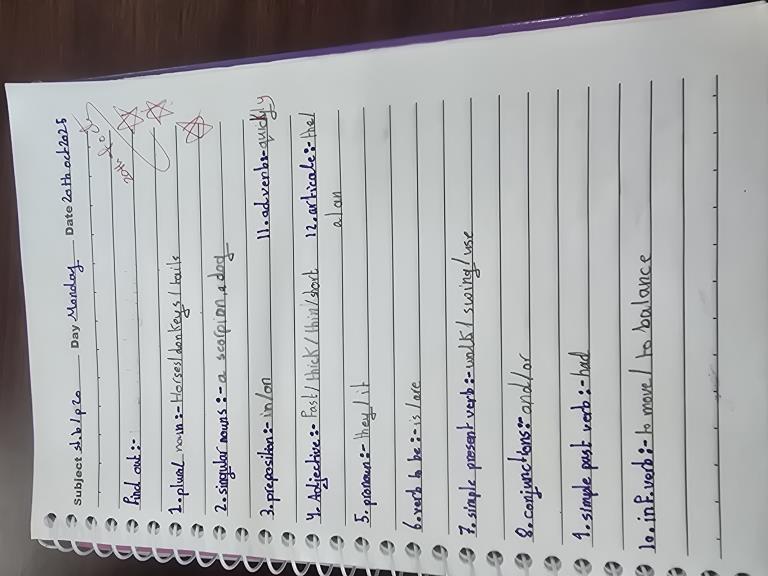 Subject st.b/p20 Day Monday Date 20th oct 2025
Find out:-
1. plural noun:- Horses/donkeys/tails
2. singular nouns:- a scorpion, a dog
3. preposition:- in/on 11. adverbs:- quickly
4. Adjective:- Fast/thick/thin/short 12. articale:- the/
a/an
5. pronoun:- they/it
6. verb to be:- is/are
7. simple present verb:- walk/swing/use
8. conjunctions:- and/or
9. simple past verb:- had
10. inf. verb:- to move/to balance